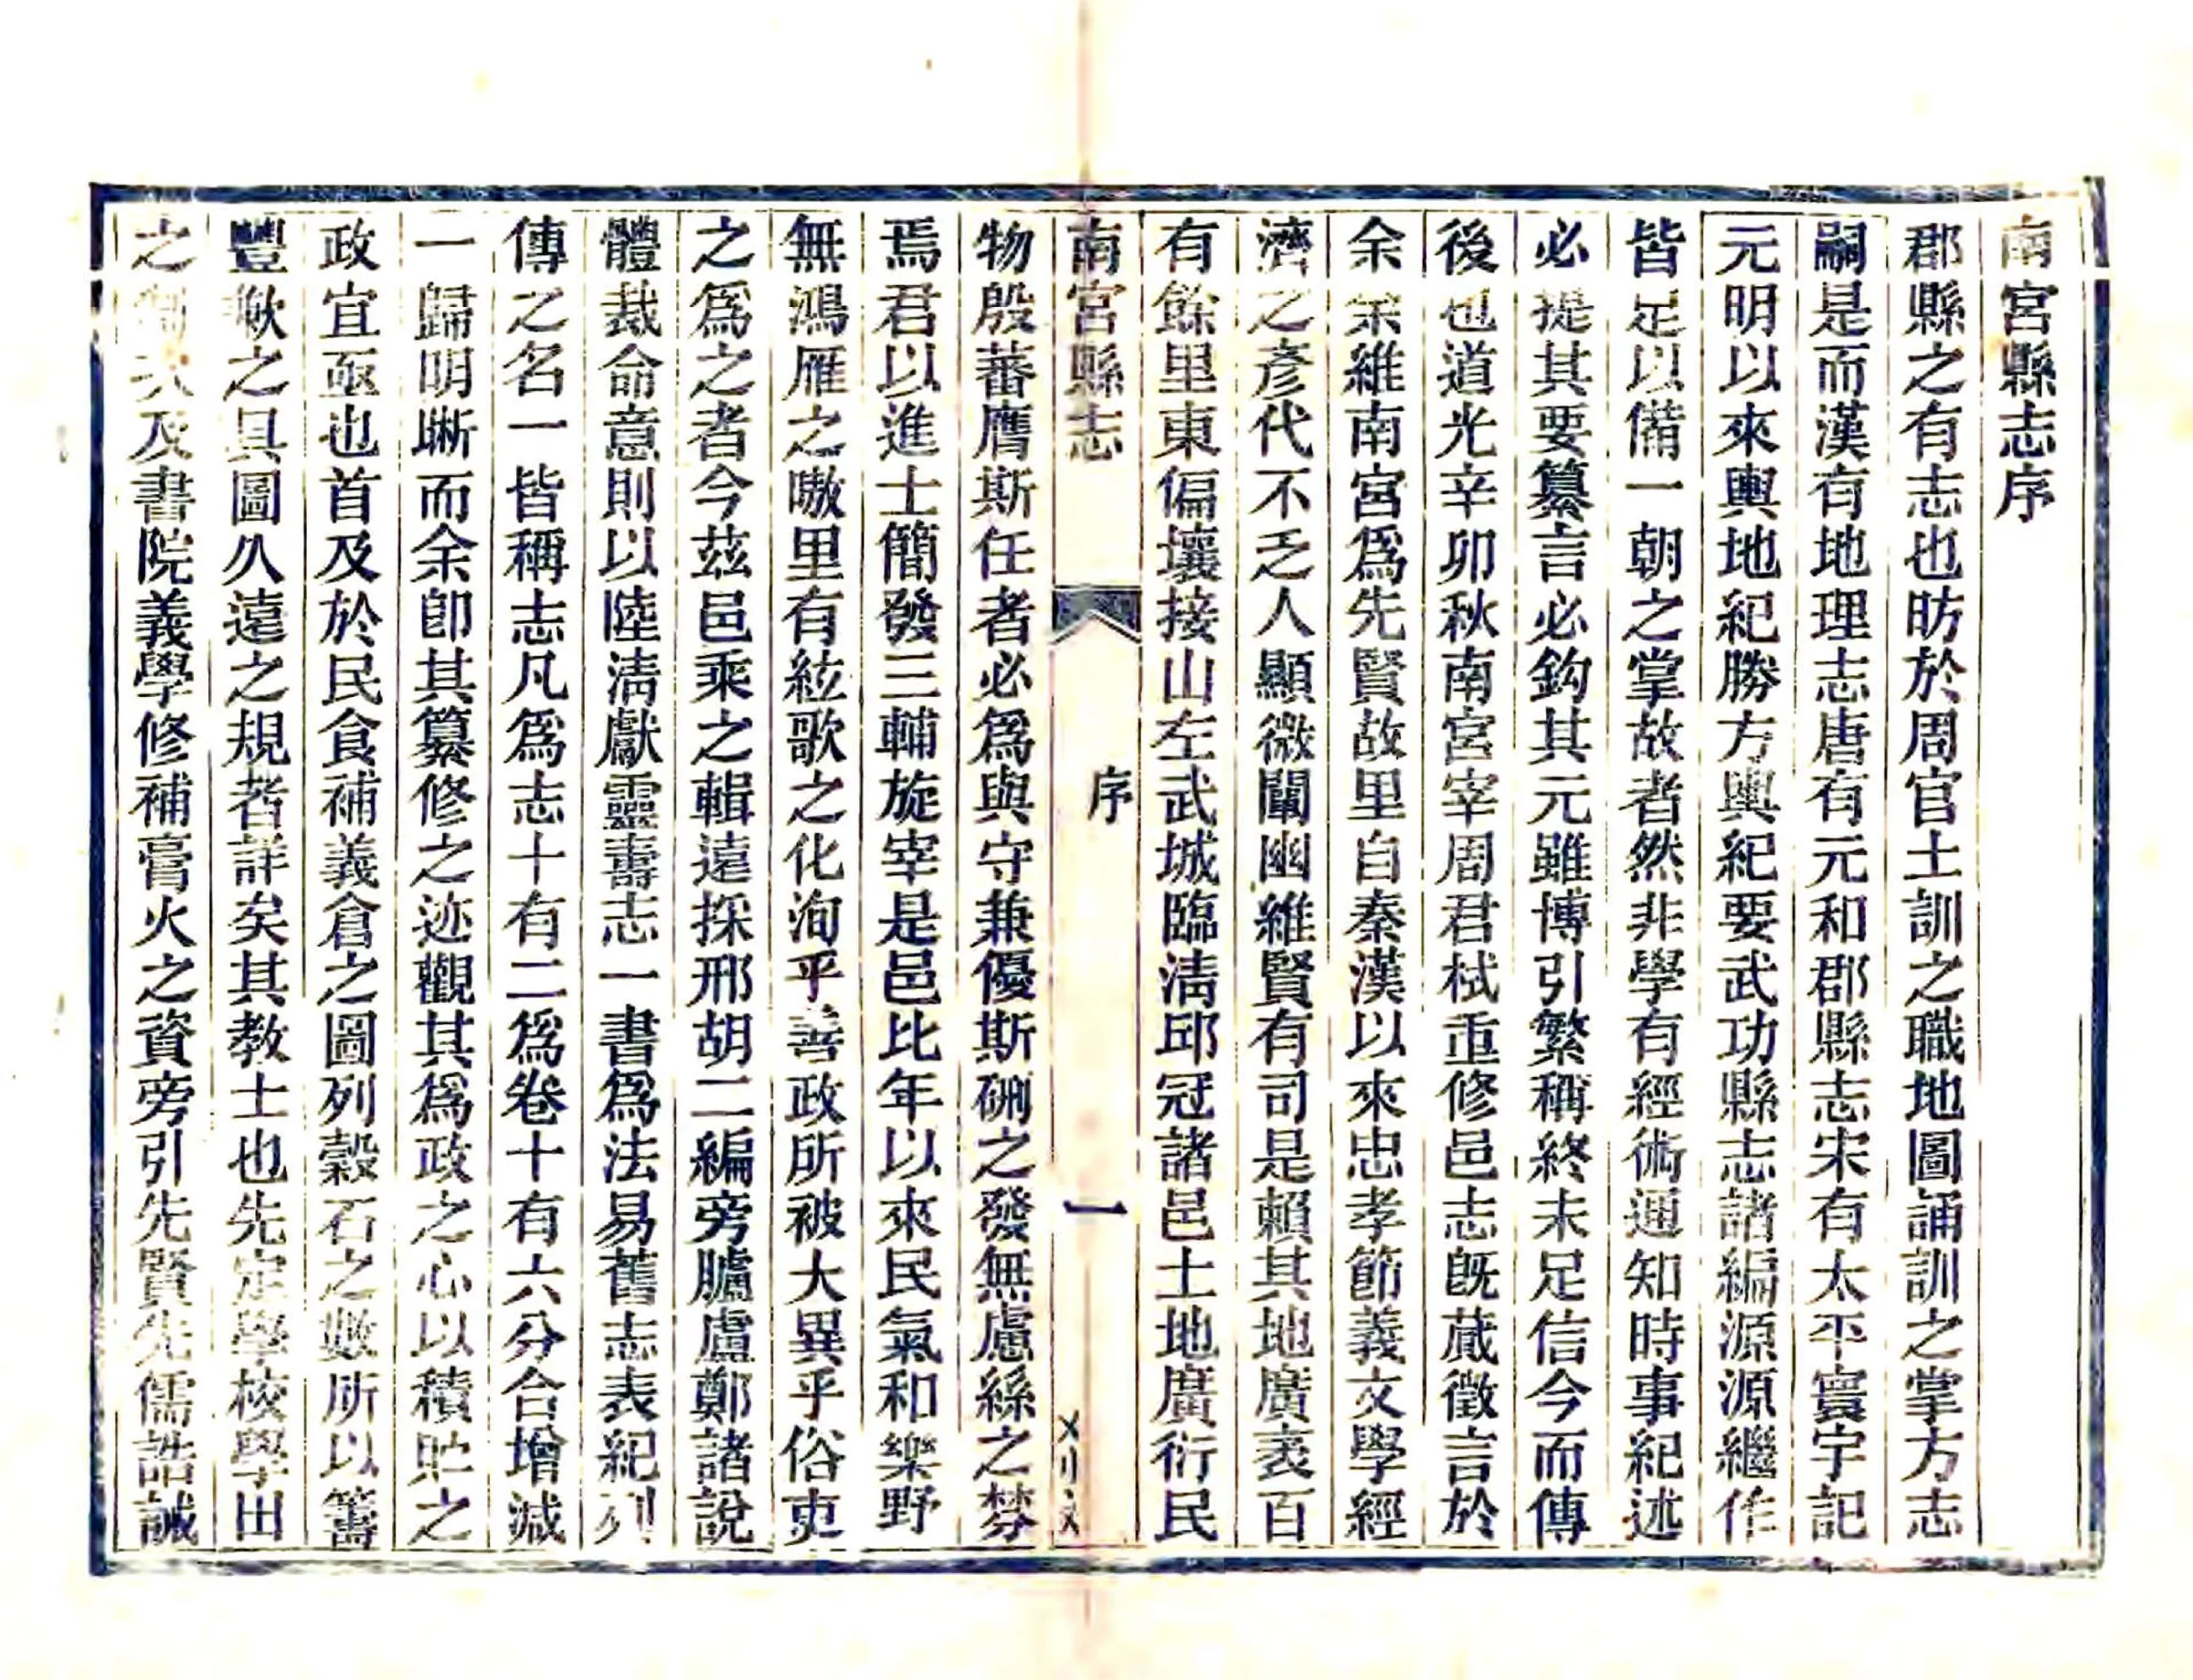 南宮縣志序
郡縣之有志也昉於周官土訓之職地圖誦訓之掌方志
嗣是而漢有地理志唐有元和郡縣志宋有太平寰宇記
元明以來輿地紀勝方輿紀要武功縣志諸編源源繼作
皆足以備一朝之掌故者然非學有經術通知時事紀述
必提其要纂言必鈎其元雖博引繁稱終未足信今而傳
後也道光辛卯秋南宮宰周君栻重修邑志旣蕆徵言於
余余維南宮爲先賢故里自秦漢以來忠孝節義文學經
濟之彥代不乏人顯微闡幽維賢有司是賴其地廣袤百
有餘里東偏壤接山左武城臨淸邱冠諸邑土地廣衍民
南宮縣志
序
一
物殷蕃膺斯任者必爲與守兼優斯硎之發無慮絲之棼
焉君以進士簡發三輔旋宰是邑比年以來民氣和樂野
無鴻雁之嗷里有絃歌之化洵乎善政所被大異乎俗吏
之爲之者今茲邑乘之輯遠採邢胡二編旁臚盧鄭諸說
體裁命意則以陸淸獻靈壽志一書爲法易舊志表紀列
傳之名一皆稱志凡爲志十有二爲卷十有六分合增減
一歸明晰而余卽其纂修之迹觀其爲政之心以積貯之
政宜亟也首及於民食補義倉之圖列穀石之數所以籌
豐歉之具圖久遠之規者詳矣其教士也先定學校學田
之 及書院義學修補膏火之資旁引先賢先儒誥誡